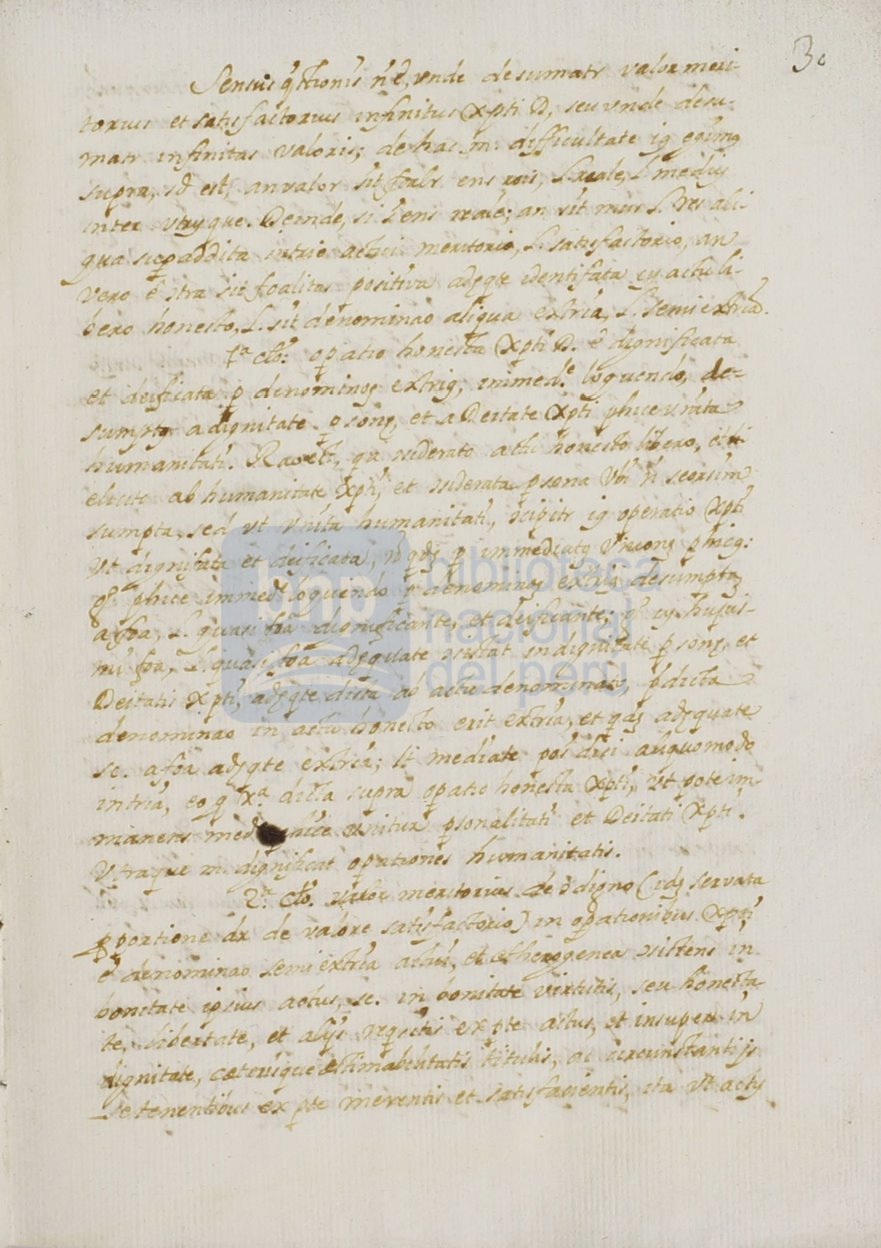 30
Sensus qstionis n ẽ, unde desumatr valor meri-
torius et satisfactorius infinitus Xpti D, seu unde desu-
matr infinitas valoris; de hac m. difficultate ig egimus
supra, sd est, an valor sit foalr ens rois, l. reale, l. mediũ
inter utrũque. Deinde, si l. ens reale; an sit mus l. res ali-
qua supaddita intrie actui meritorio, l. satisfactorio, an
vero ẽ ɔtra sit foalitas positiva adęqte identifata cũ actu li-
bero honesto, l. sit denominao aliqua extria, l. semiextria.
1ª clõ: opatio honesta Xpti D. ẽ dignificata
et deificata p denominoę extrię, immedte loquendo, de-
sumptę a dignitate psonę, et a Deitate Xpti phice unita
humanitati. Rao est, qa ɔsiderato actu honesto libero,
elicito ab humanitate Xpti, et ɔsiderata psona Vbi n seorsim
sumpta, sed ut unita humanitati, ɔcipitr ig operatio Xpti
ut dignifata et deificata, p immediatę unionę phicę:
phice immedte loquendo p denominoę extrię desumptę
a foa, l. quasi foa dignificante, et deificante; cũ hujus-
mi foa, l. quasi foa adęquate ɔsistat in dignitate psonę, et
Deitatis Xpti, adęqte dista ab actu denominao, pdicta
denominao in actu honesto erit extria, et qas adęquate
sc. a foa adęqte extria; lt mediate pot dici aliquomodo
intria, eo q Xª dicta supra opatio honesta Xpti, ut pote im-
manens med phice unitur psonalitati et Deitati Xpti.
Utraque m dignificat opationes humanitatis.
2ª clõ. valor meritorius de ɔdigno (idę servata
pportione dr de valore satisfactorio) in opationibus Xpti
ẽ denominao semiextria actus, et etherogenea ɔsistens in
bonitate ipsius actus, sc. in bonitate virtutis, seu honesta-
te, libertate, et alijs reqsitis ex pte actus, et insuper in
dignitate, cæterisque æstimabilitatis titulis, ac circunstantijs
se tenentibus ex pte merentis et satisfacientis, ita ut actũ
biblioteca
nacional
del perú
bnp